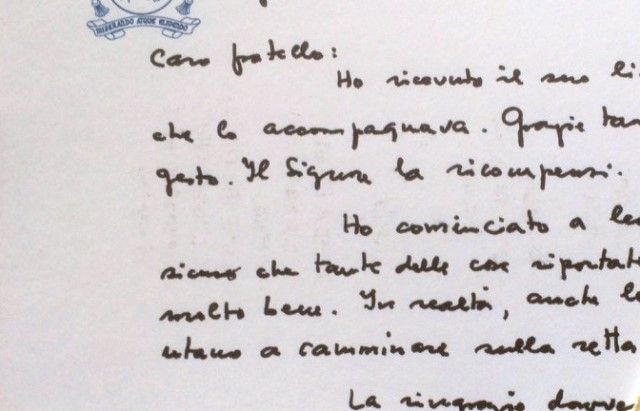 MISERANDO ATQUE ELIGENDO
Caro fratello:
Ho ricevuto il suo li
che lo accompagnava. Grazie tan
gesto. Il Signore la ricompensi.
Ho cominciato a le
sicuro che tante delle cose riportate
molto bene. In realtà, anche lo
utano a camminare sulla retta
La ringrazio davve